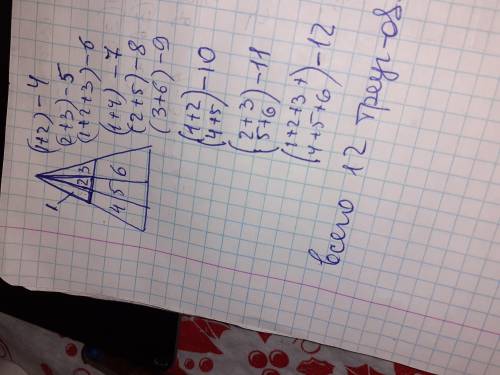 1
2 3
4 5 6
(1+2) - 4
(2+3) - 5
(1+2+3) - 6
(1+4) - 7
(2+5) - 8
(3+6) - 9
(1+2
4+5) - 10
(2+3
5+6) - 11
(1+2+3+
4+5+6) - 12
всего 12 треуг-ов.